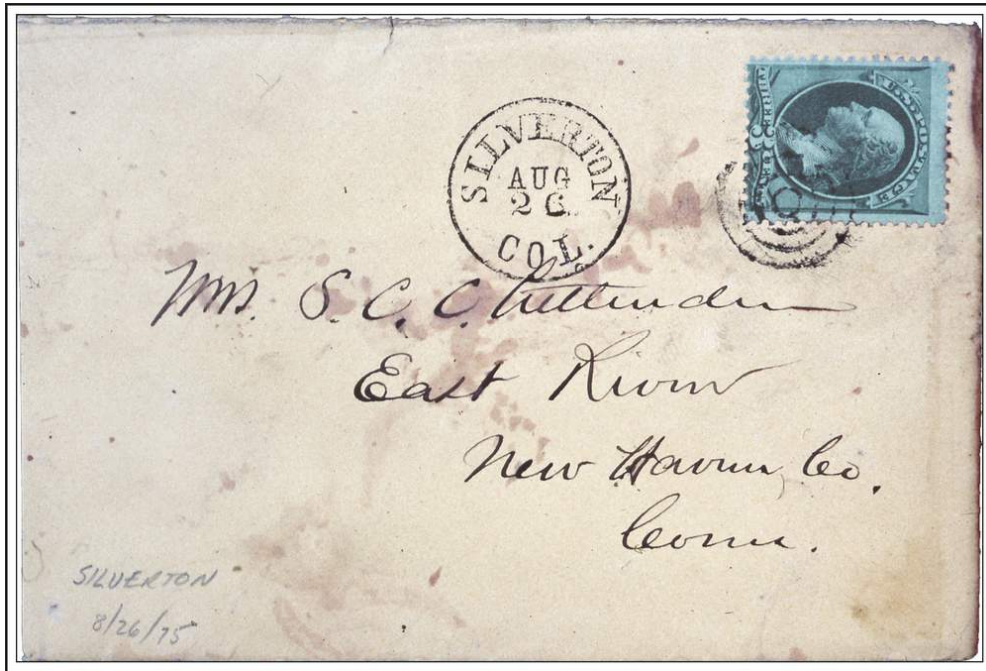 SILVERTON
AUG
26
COL.
Mrs. S. C. Chittenden
East River
New Haven, Co.
Conn.
SILVERTON
8/26/75